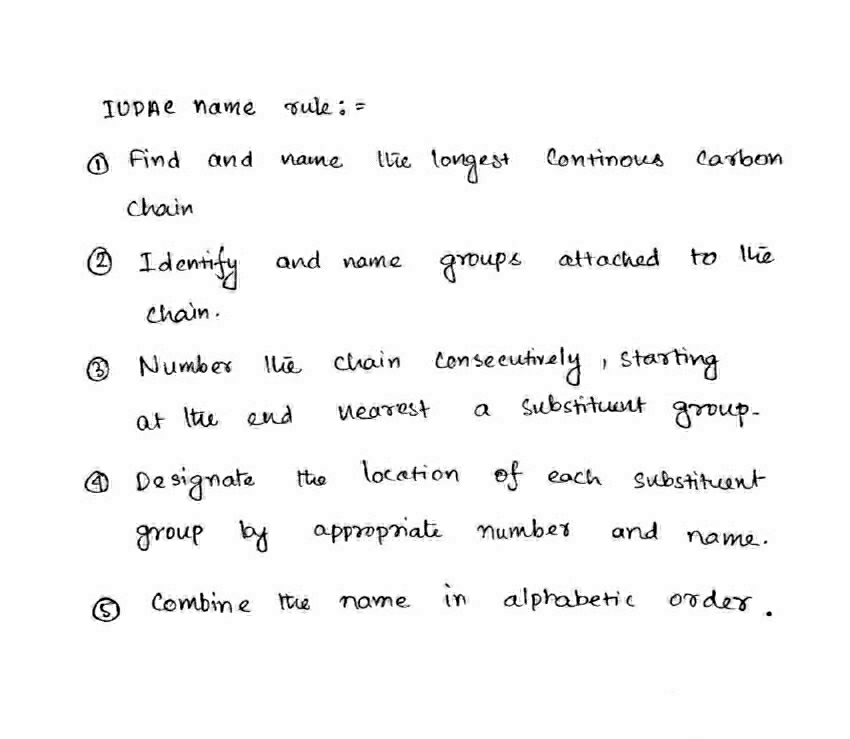 IUPAC name rule :=
① Find and name the longest Continous Carbon
chain
② Identify and name groups attached to the
chain.
③ Number the chain Consecutively, starting
at the end nearest a substituent group-
④ Designate the location of each substituent
group by appropriate number and name.
⑤ Combine the name in alphabetic order.